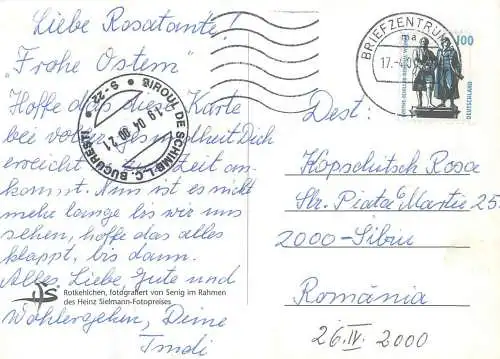 Liebe Rosatante!
"Frohe Ostern"
Hoffe daß diese Karte
bei voller Gesundheit Dich
erreicht Zeit an-
kommt. Nun ist es nicht
mehr lange bis wir uns
sehen, hoffe das alles
klappt, bis dann.
Alles Liebe, Gute und
Wohlergehen, Deine
Trudi
Rotkehlchen, fotografiert von Senig im Rahmen
des Heinz Sielmann-Fotopreises
BIROUL DE SCHIMB L.C. BUCURESTI
S-22
19 04 00 21
BRIEFZENTRUM
ma
17.-4.0
100
DEUTSCHLAND
Dest:
Kopschitsch Rosa
Str. Piata Martie 25
2000-Sibiu
România
26.IV.2000